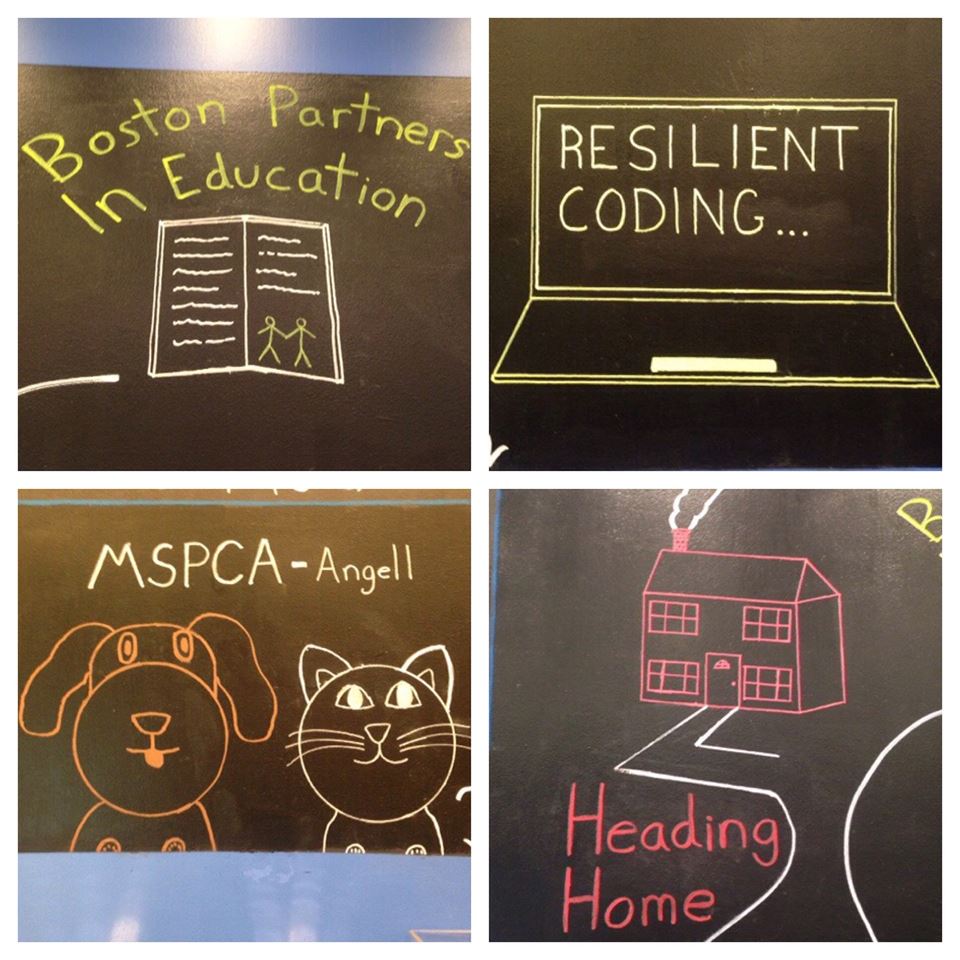 Boston Partners
In Education
RESILIENT
CODING...
MSPCA-Angell
Heading
Home